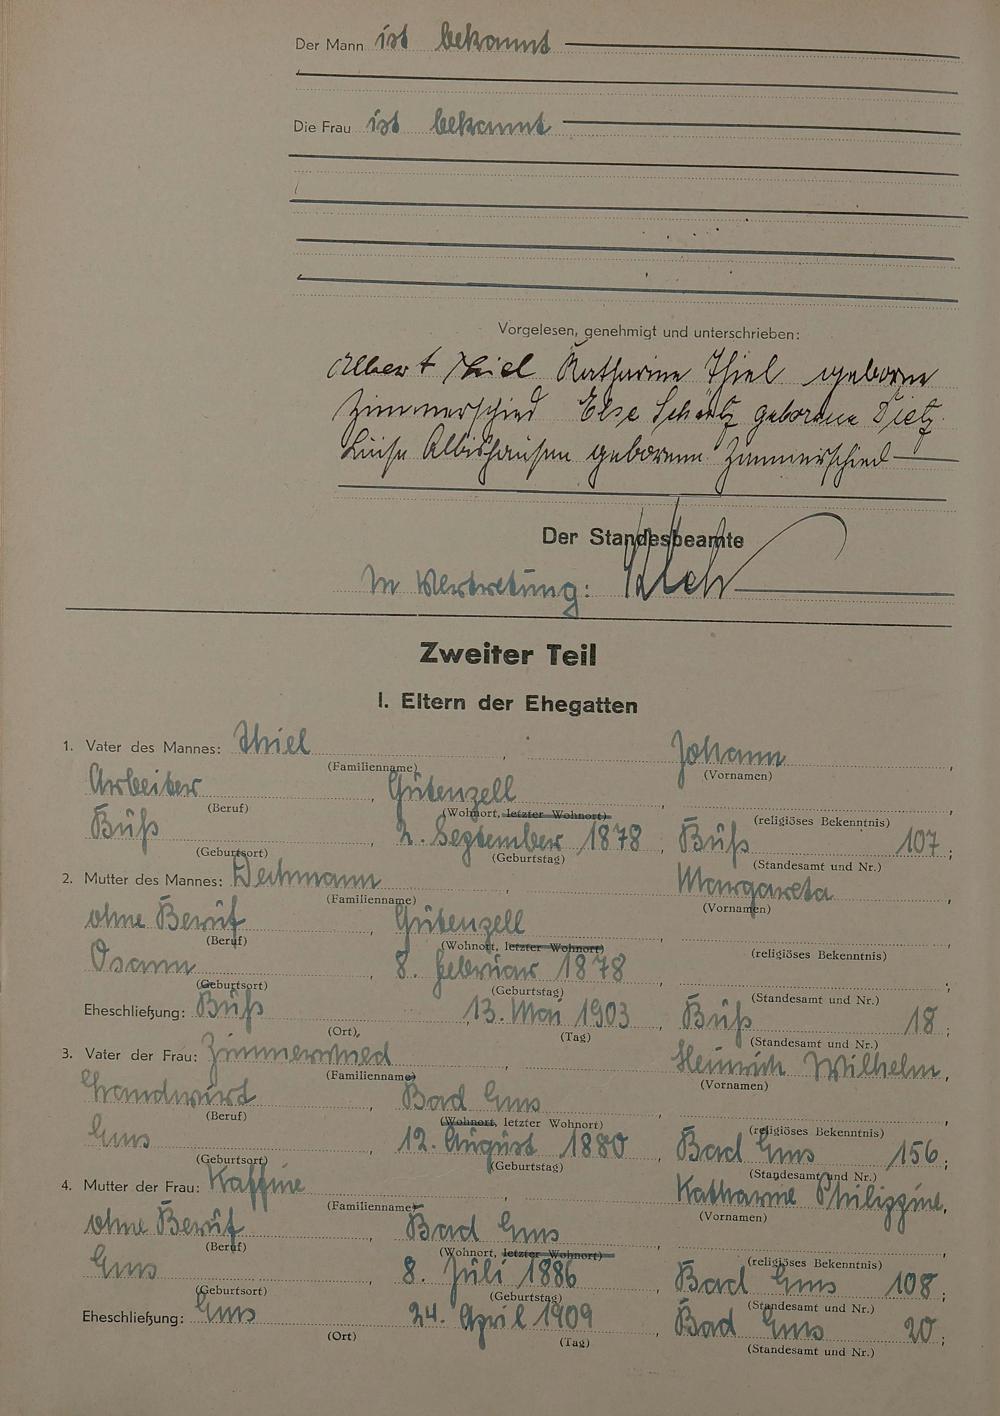 Der Mann ist bekannt
Die Frau ist bekannt
Vorgelesen, genehmigt und unterschrieben:
Albert Thiel Katharine Thiel geborne
Zimmerschied Else Schätz geborene Dietz
Luise Albishausen geborene Zimmerschied
Der Standesbeamte
In Vertretung:
Zweiter Teil
I. Eltern der Ehegatten
1. Vater des Mannes: Thiel, Johann,
(Familienname) (Vornamen)
Arbeiter, Gutenzell,
(Beruf) (Wohnort, letzter Wohnort) (religiöses Bekenntnis)
Büß, 2. September 1878, Büß 107;
(Geburtsort) (Geburtstag) (Standesamt und Nr.)
2. Mutter des Mannes: Deihmann, Margareta,
(Familienname) (Vornamen)
ohne Beruf, Gutenzell,
(Beruf) (Wohnort, letzter Wohnort) (religiöses Bekenntnis)
Osann, 8. Februar 1878,
(Geburtsort) (Geburtstag) (Standesamt und Nr.)
Eheschließung: Büß, 13. Mai 1903, Büß 18;
(Ort), (Tag) (Standesamt und Nr.)
3. Vater der Frau: Zimmerschied, Heinrich Wilhelm,
(Familienname) (Vornamen)
Landwirt, Bad Ems,
(Beruf) (Wohnort, letzter Wohnort) (religiöses Bekenntnis)
Ems, 12. August 1880, Bad Ems 156;
(Geburtsort) (Geburtstag) (Standesamt und Nr.)
4. Mutter der Frau: Kaffine, Katharine Philippine,
(Familienname) (Vornamen)
ohne Beruf, Bad Ems,
(Beruf) (Wohnort, letzter Wohnort) (religiöses Bekenntnis)
Ems, 8. Juli 1886, Bad Ems 108;
(Geburtsort) (Geburtstag) (Standesamt und Nr.)
Eheschließung: Ems, 24. April 1909, Bad Ems 20;
(Ort) (Tag) (Standesamt und Nr.)